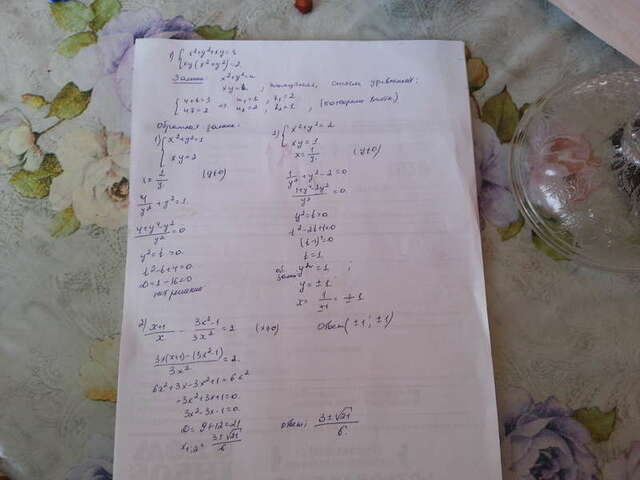 1) { x²+y²+xy=3
xy(x²+y²)=2
Замена x²+y²=u
xy=t ; система уравнений:
{ u+t=3 ⇒ u₁=1, t₁=2
ut=2 u₂=2, t₂=1
Обратная замена:
1) { x²+y²=1
xy=2
x=2/y (y≠0)
4/y²+y²=1
(4+y⁴-y²)/y²=0
y²=t >0
t²-t+4=0
D=1-16<0
нет решения
2) { x²+y²=2
xy=1
x=1/y (y≠0)
1/y²+y²-2=0
(1+y⁴-2y²)/y²=0
y²=t>0
t²-2t+1=0
(t-1)²=0
t=1
об. замена y²=1 ;
y=±1
x=1/±1=±1
Ответ(±1; ±1)
2) (x+1)/x - (3x²-1)/3x²=2 (x≠0)
(3x(x+1)-(3x²-1))/3x²=2
6x²+3x-3x²+1=6x²
-3x²+3x+1=0
3x²-3x-1=0
D=9+12=21
x₁,₂=(3±√21)/6
Ответ; (3±√21)/6